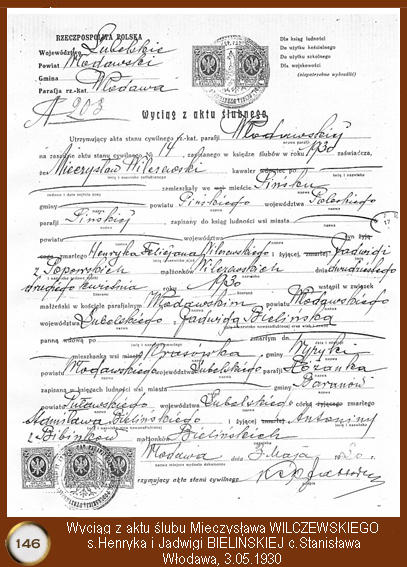 RZECZPOSPOLITA POLSKA
Województwo Lubelskie
Powiat Włodawski
Gmina
Parafja rz.-kat. Włodawa
Dla ksiąg ludności
Do użytku kościelnego
Do użytku szkolnego
Dla wojskowości
(niepotrzebne wykreślić)
№ 203
Wyciąg z aktu ślubnego
Utrzymujący akta stanu cywilnego rz.-kat. parafji Włodawskiej
na zasadzie aktu stanu cywilnego № 14, zapisanego w księdze ślubów w roku 1930 zaświadcza,
że Mieczysław Wilczewski kawaler
zamieszkały we mieście Pińsku
gminy powiatu Pińskiego województwa Poleskiego
parafji Pińskiej zapisany do ksiąg ludności wsi miasta
powiatu województwa syn
zmarłego Henryka Felicjana Wilczewskiego i żyjącej Jadwigi
z małżonków Wilczewskich dnia dwudziestego
drugiego kwietnia roku 1930 wstąpił w związek
małżeński w kościele parafjalnym Włodawskim powiatu Włodawskiego
województwa Lubelskiego z Jadwigą Bielińską
panną wdową po zmarłym dn.
mieszkanką wsi miasta Krasówka gminy Wyryki
powiatu Włodawskiego województwa Lubelskiego parafji
zapisaną w księgach ludności wsi miasta gminy Baranów
powiatu Puławskiego województwa Lubelskiego córką żyjącego zmarłego
Stanisława Bielińskiego i żyjącej zmarłej Antoniny
z małżonków Bielińskich
Włodawa dnia 3 Maja 1930 r.
nazwa miejsca wydania dokumentu
Utrzymujący akta stanu cywilnego
146
Wyciąg z aktu ślubu Mieczysława WILCZEWSKIEGO
s.Henryka i Jadwigi BIELIŃSKIEJ c.Stanisława
Włodawa, 3.05.1930